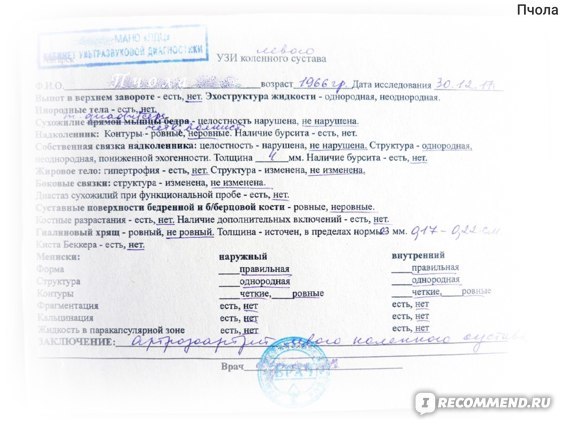 Пчола
МАНО
КАБИНЕТ УЛЬТРАЗВУКОВОЙ ДИАГНОСТИКИ
левого
УЗИ коленного сустава
Ф.И.О. возраст 1966 гр. Дата исследования 30.12.17
Выпот в верхнем завороте - есть, нет. Эхоструктура жидкости - однородная, неоднородная.
Инородные тела - есть, нет.
Сухожилие прямой мышцы бедра - целостность нарушена, не нарушена.
Надколенник: Контуры - ровные, неровные. Наличие бурсита - есть, нет.
Собственная связка надколенника: целостность - нарушена, не нарушена. Структура - однородная,
неоднородная, пониженной эхогенности. Толщина 4 мм. Наличие бурсита - есть, нет.
Жировое тело: гипертрофия - есть, нет. Структура - изменена, не изменена.
Боковые связки: структура - изменена, не изменена.
Диастаз сухожилий при функциональной пробе - есть, нет.
Суставные поверхности бедренной и б/берцовой кости - ровные, неровные.
Костные разрастания - есть, нет. Наличие дополнительных включений - есть, нет.
Гиалиновый хрящ - ровный, не ровный. Толщина - источен, в пределах нормы 03 мм. 0,17 - 0,22 см
Киста Беккера - есть, нет.
Мениски: наружный внутренний
Форма правильная правильная
Структура однородная однородная
Контуры четкие, ровные четкие, ровные
Фрагментация есть, нет есть, нет
Кальцинация есть, нет есть, нет
Жидкость в паракапсулярной зоне есть, нет есть, нет
ЗАКЛЮЧЕНИЕ: Артрозоартрит левого коленного сустава
Врач
IRECOMMEND.RU